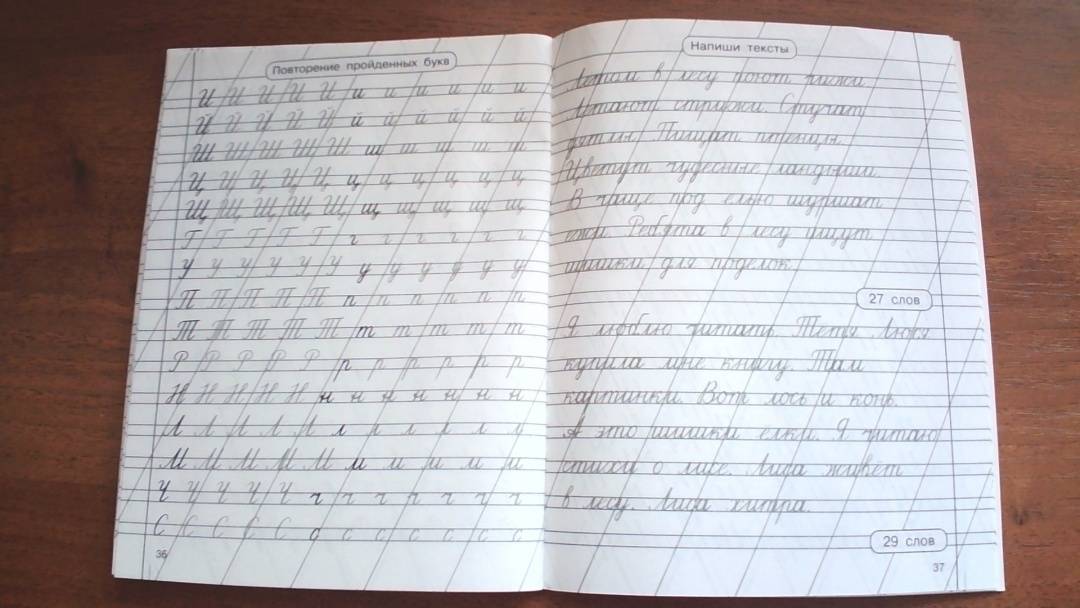 Повторение пройденных букв
И И И И И и и и и и и
Й Й Й Й Й й й й й й й
Ш Ш Ш Ш Ш ш ш ш ш ш
Ц Ц Ц Ц Ц ц ц ц ц ц ц
Щ Щ Щ Щ Щ щ щ щ щ щ
Г Г Г Г Г г г г г г г
У У У У У У у у у у у у
П П П П П п п п п п п
Т Т Т Т Т т т т т т
Р Р Р Р Р р р р р р р
Н Н Н Н Н н н н н н н
Л Л Л Л Л л л л л л л
М М М М М м м м м м м
Ч Ч Ч Ч Ч ч ч ч ч ч ч ч
С С С С С с с с с с с с
36
Напиши тексты
Летом в лесу поют чижи.
Летают стрижи. Стучат
дятлы. Пищат птенцы.
Цветут чудесные ландыши.
В чаще под елью шуршат
ежи. Ребята в лесу ищут
шишки для поделок.
27 слов
Я люблю читать. Тётя Люся
купила мне книгу. Там
картинки. Вот лось и конь.
А это шишки ёлки. Я читаю
стихи о лисе. Лиса живёт
в лесу. Лиса хитра.
29 слов
37